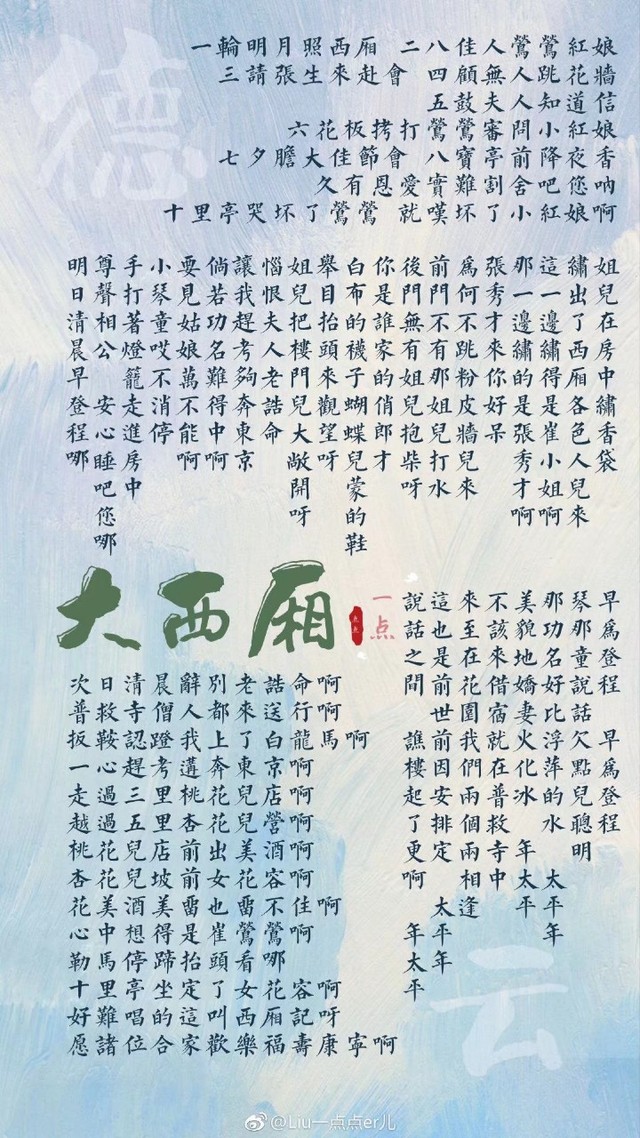 德
一輪明月照西厢 二八佳人鶯鶯紅娘
三請張生來赴會 四顧無人跳花牆
五鼓夫人知道信
六花板拷打鶯鶯審問小紅娘
七夕膽大佳節會 八寶亭前降夜香
久有恩愛實難割舍吧您吶
十里亭哭坏了鶯鶯 就嘆坏了小紅娘啊
姐兒在房中繡香袋
繡出了西厢各色人兒來
這一邊繡得是崔小姐啊
那一邊繡的是張秀才啊
張秀才來你好呆
爲何不跳粉皮牆兒來
前門不有那姐兒打水
後門無有姐兒抱柴呀
你是誰家的俏郎才
白布的襪子蝴蝶兒蒙的鞋
舉目抬頭來觀望呀
姐兒把樓門兒大敞開呀
惱恨夫人老誥命
讓我趕考夠奔東京
倘若功名難得中啊
要見姑娘萬不能啊
小琴童哎不消停
手打著燈籠走進房中
尊聲相公 安心睡吧您哪
明日清晨早登程哪
大西厢
一点
早爲登程 早爲登程
琴那童說話欠點兒聰明
那功名好比浮萍的水 太平年
美貌地嬌妻火化冰 年太平
不該來借宿就在普救寺中
來至在花園我們兩個兩相逢
這也是前世前因安排定 太平年
說話之間 譙樓起了更啊 年太平
次日清晨辭別老誥命啊
普救寺僧人都來送行啊
扳鞍認蹬我上了白龍馬啊
一心趕考邁奔東京啊
走過三里桃花兒店啊
越過五里杏花兒營啊
桃花兒店前出美酒啊
杏花兒坡前女花容啊
花美酒美畱也畱不佳啊
心中想得是崔鶯鶯
勒馬停蹄抬頭看哪
十里亭坐定了女花容啊
好難唱的這叫西厢記呀
愿諸位合家歡樂福壽康寧啊
云
@Liu一点点er儿